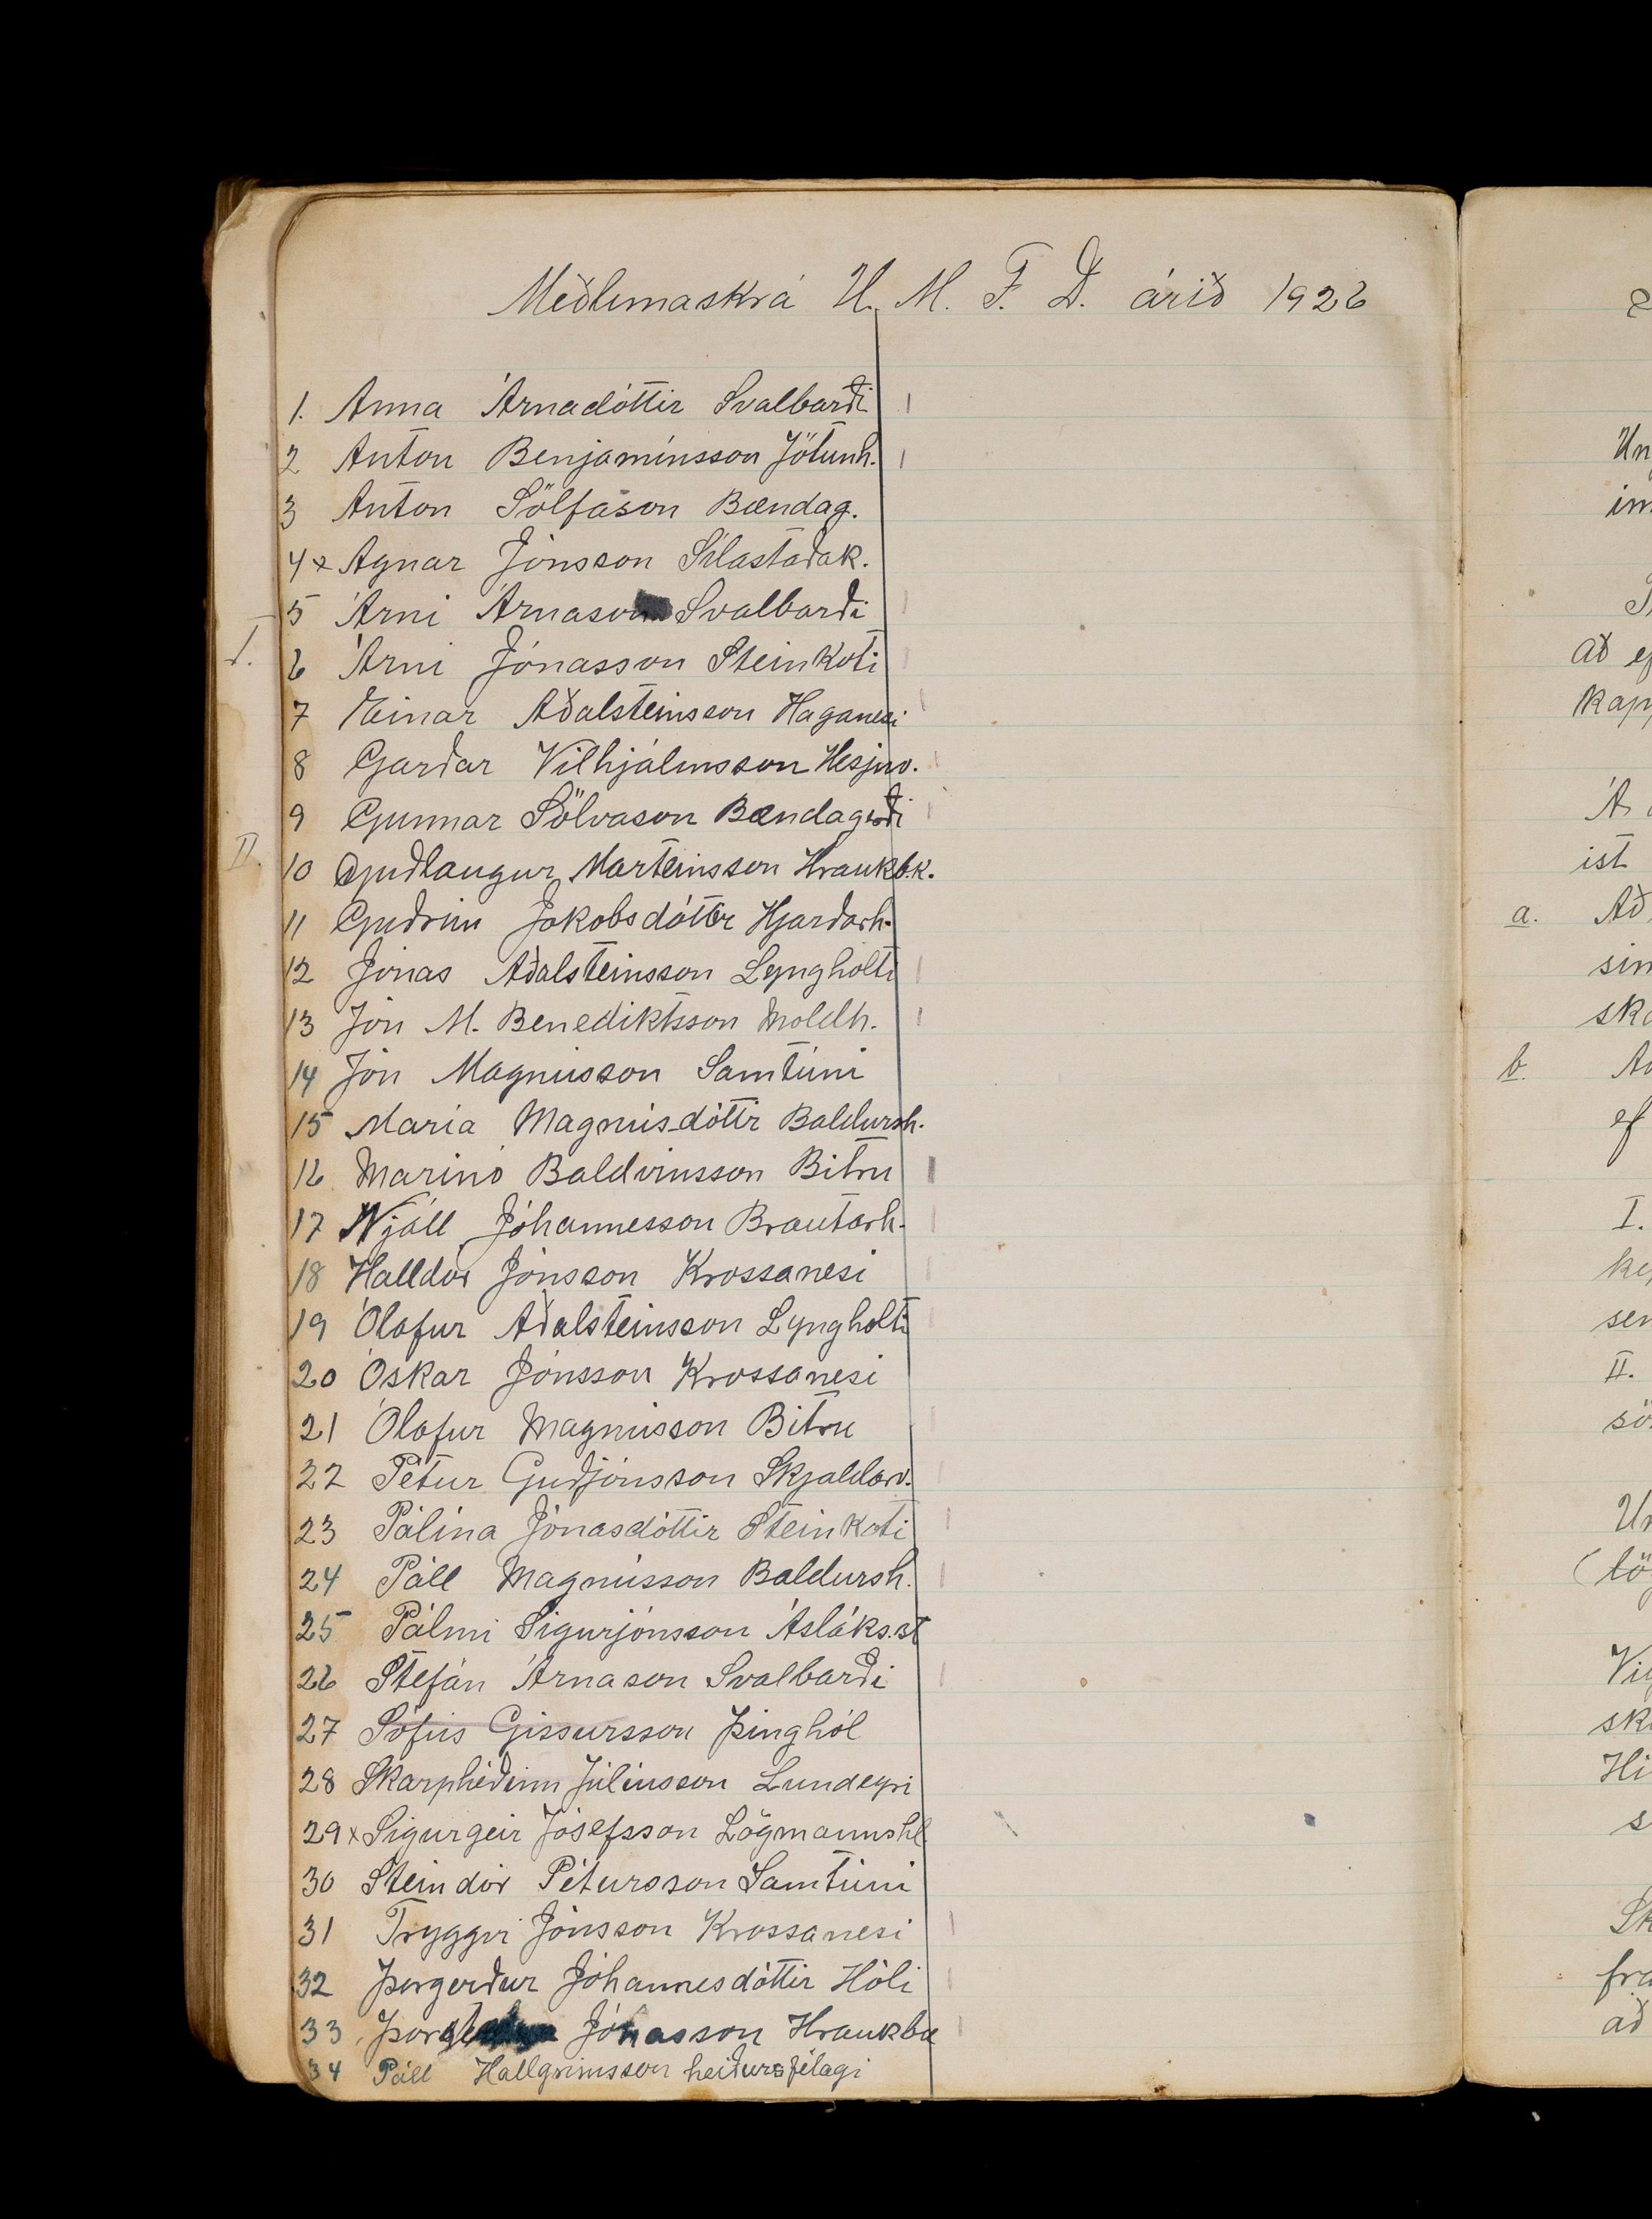 Meðlimaskrá U. M. F. D. árið 1926
1. Anna Árnadóttir Svalbarði
2 Anton Benjamínsson Jötunh.
3 Anton Sölfason Bændag.
4x Agnar Jónsson Sílastaðak.
5 Árni Árnason Svalbarði
I.
6 Árni Jónasson Steinkoti
7 Einar Aðalsteinsson Haganesi
8 Garðar Vilhjálmsson Hesjuv.
9 Gunnar Sölvason Bændagerði
II.
10 Guðlaugur Marteinsson Hraukb.k.
11 Guðrún Jakobsdóttir Hjarðarh.
12 Jónas Aðalsteinsson Lyngholti
13 Jón M. Benediktsson Moldh.
14 Jón Magnússon Samtúni
15 María Magnúsdóttir Baldursh.
16 Marinó Baldvinsson Bitru
17 Njáll Jóhannesson Brautarh.
18 Halldór Jónsson Krossanesi
19 Ólafur Aðalsteinsson Lyngholti
20 Óskar Jónsson Krossanesi
21 Ólafur Magnússon Bitru
22 Pétur Guðjónsson Skjaldarv.
23 Pálína Jónasdóttir Steinkoti
24 Páll Magnússon Baldursh.
25 Pálmi Sigurjónsson Ásláks.st
26 Stefán Árnason Svalbarði
27 Sófús Gissursson Þinghól
28 Skarphéðinn Júlíusson Lundeyri
29x Sigurgeir Jósefsson Lögmannshl
30 Steindór Pétursson Samtúni
31 Tryggvi Jónsson Krossanesi
32 Þorgerður Jóhannesdóttir Hóli
33 Jónasson Hraukbæ
34 Páll Hallgrímsson heiðursfélagi
Un
im
að ef
kap
Á
ist
a. Að
sin
sk
b.
ef
I.
sem
II.
Un
Vi
sk
Hi
s
Sk
fra
að